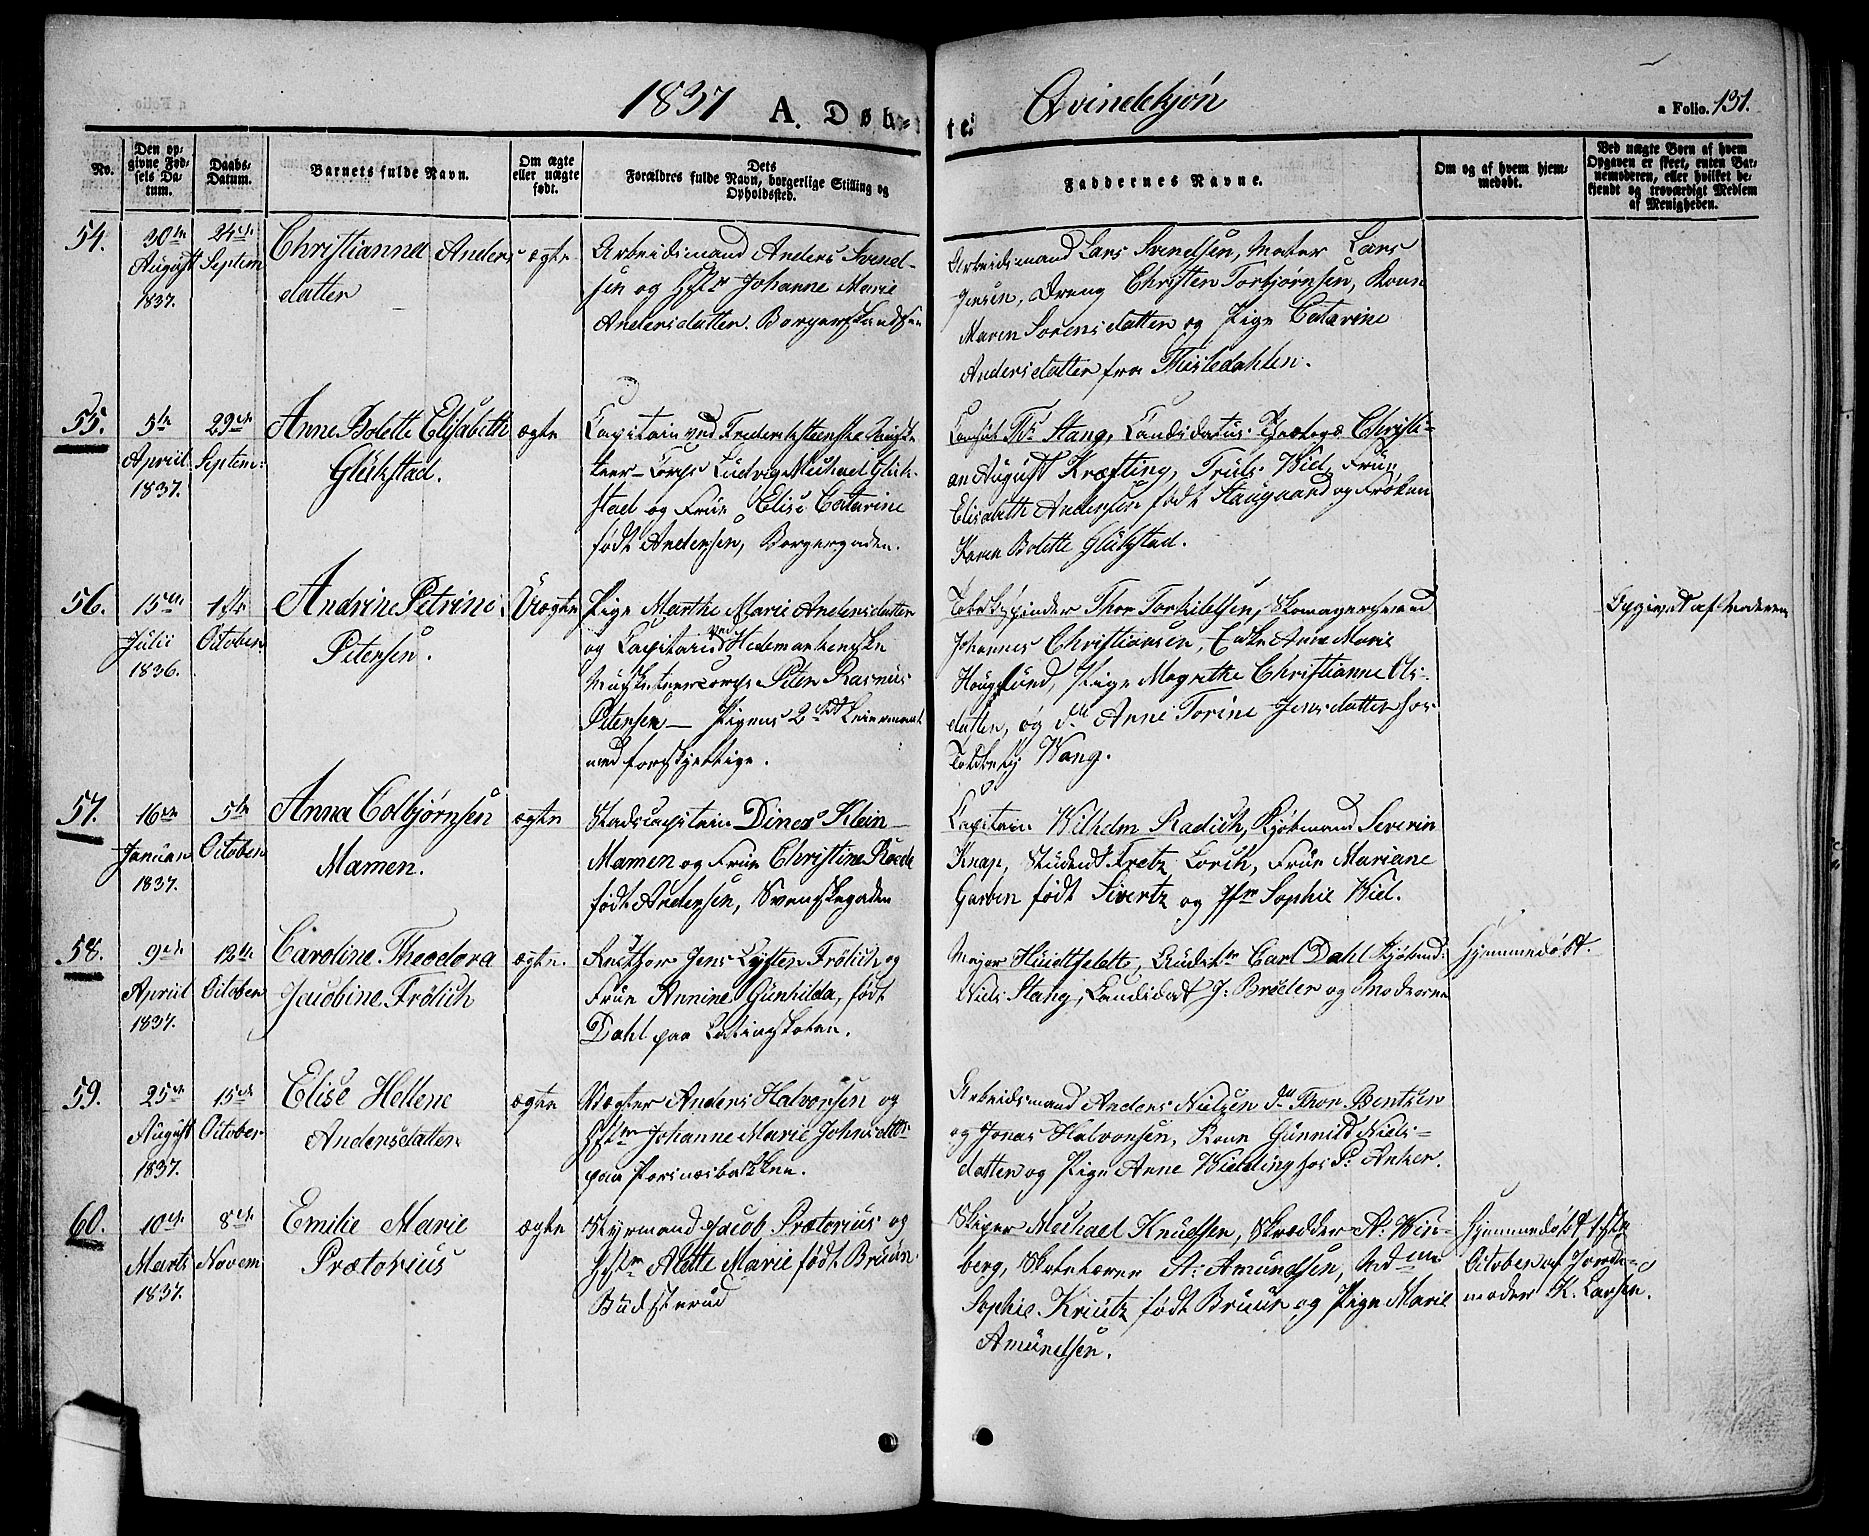 1837 A. Døb-te. Qvindekjøn a Folio. 131.
No.
Den opgivne Fødsels Datum.
Daabs-Datum.
Barnets fulde Navn.
Om ægte eller uægte født.
Dets Forældres fulde Navn, borgerlige Stilling og Opholdssted.
Faddernes Navne.
Om og af hvem hjemmedøbt.
Ved uægte Børn af hvem Opgaven er skeet, enten Barnemoderen, eller hvilket bekjendt og troværdigt Medlem af Menigheden.
54.
30te
August
1837.
24de
Septem
Christianna Anders
datter
ægte
Arbeidsmand Anders Svend-
sen og Hstr Johanne Marie
Andersdatter. Borgerskandsen
Arbeidsmand Lars Svendsen, Mater Lars
Jensen, Dreng Christen Torbjørnsen, Kone
Maren Sørensdatter og Pige Catarine
Andersdatter fra Tistedahlen.
55.
5te
April
1837.
29de
Septem:
Anne Bolette Elisabeth
Glükstad.
ægte
Capitain ved Frederiksteenske Musket-
teer-Corps Ludvig Michael Glük-
stad og Frue Elise Catarine
født Andersen, Borgergaden.
Consul Ths Stang, Candidatus Christi-
an August Kræfting, Truls Wiel, Frue
Elisabeth Andersen født Stausgaard og Frøken
Karen Bolette Glükstad.
56.
15de
Julii
1836.
1ste
October
Andrine Petrine
Petersen.
Uægte
Pige Marthe Marie Andersdatter
og Capitain ved Hedemarkenske
Musketteercorps Peter Rasmus
Petersen - Pigens 2det Leiermaal
med forskjellige.
Thor Torkildsen, Skomagersvend
Johannes Christiansen, Enke Anne Marie
Hougsund, Pige Magrethe Christianne Ols-
datter, og do Anne Torine Jensdatter hos
Wang.
Opgivet af Moderen
57.
16de
Januar
1837.
5te
October
Anna Colbjørnsen
Mamen.
ægte
Stadscapitain Dines Klein
Mamen og Frue Christine Roede
født Andersen, Svenskegaden
Capitain Wilhelm Radich, Kjøbmand Severin
Knap, Student Fretz Lorch, Frue Mariane
Garben født Sivertz og Jfr Sophie Wiel.
58.
9de
April
1837.
12te
October
Caroline Theodora
Jacobine Frölich
ægte.
Rector Jens Frölich og
Frue Annine Gunhilda, født
Dahl paa Latinskolen.
Major Huidtfeldt, Auditr Carl Dahl Kjøbmd:
Niels Stang, Candidat J: Brøder og Moderen
Hjemmedøbt.
59.
25de
August
1837.
15de
October
Elise Hellene
Andersdatter
ægte
Vægter Anders Halvorsen og
Hstr Johanne Marie Johnsdttr
paa Porsnæsbakken.
Arbeidsmand Anders Nielsen do Thor Bentsen
og Jonas Halvorsen, Kone Gunnild Niels-
datter og Pige Anne Wielding hos P: Anker.
60.
10de
Marts
1837.
8de
Novem
Emilie Marie
Prætorius
ægte
Styrmand Jacob Prætorius og
Hstr Alette Marie født Bruun
Büdsterud
Skiper Michael Knudsen, Skrædder A: Win-
berg, A: Amundsen, Md me
Sophie Krüütz født Bruun og Pige Marie
Amundsen.
Hjemmedøbt 1ste
October af Jorde-
moder K. Larsen.